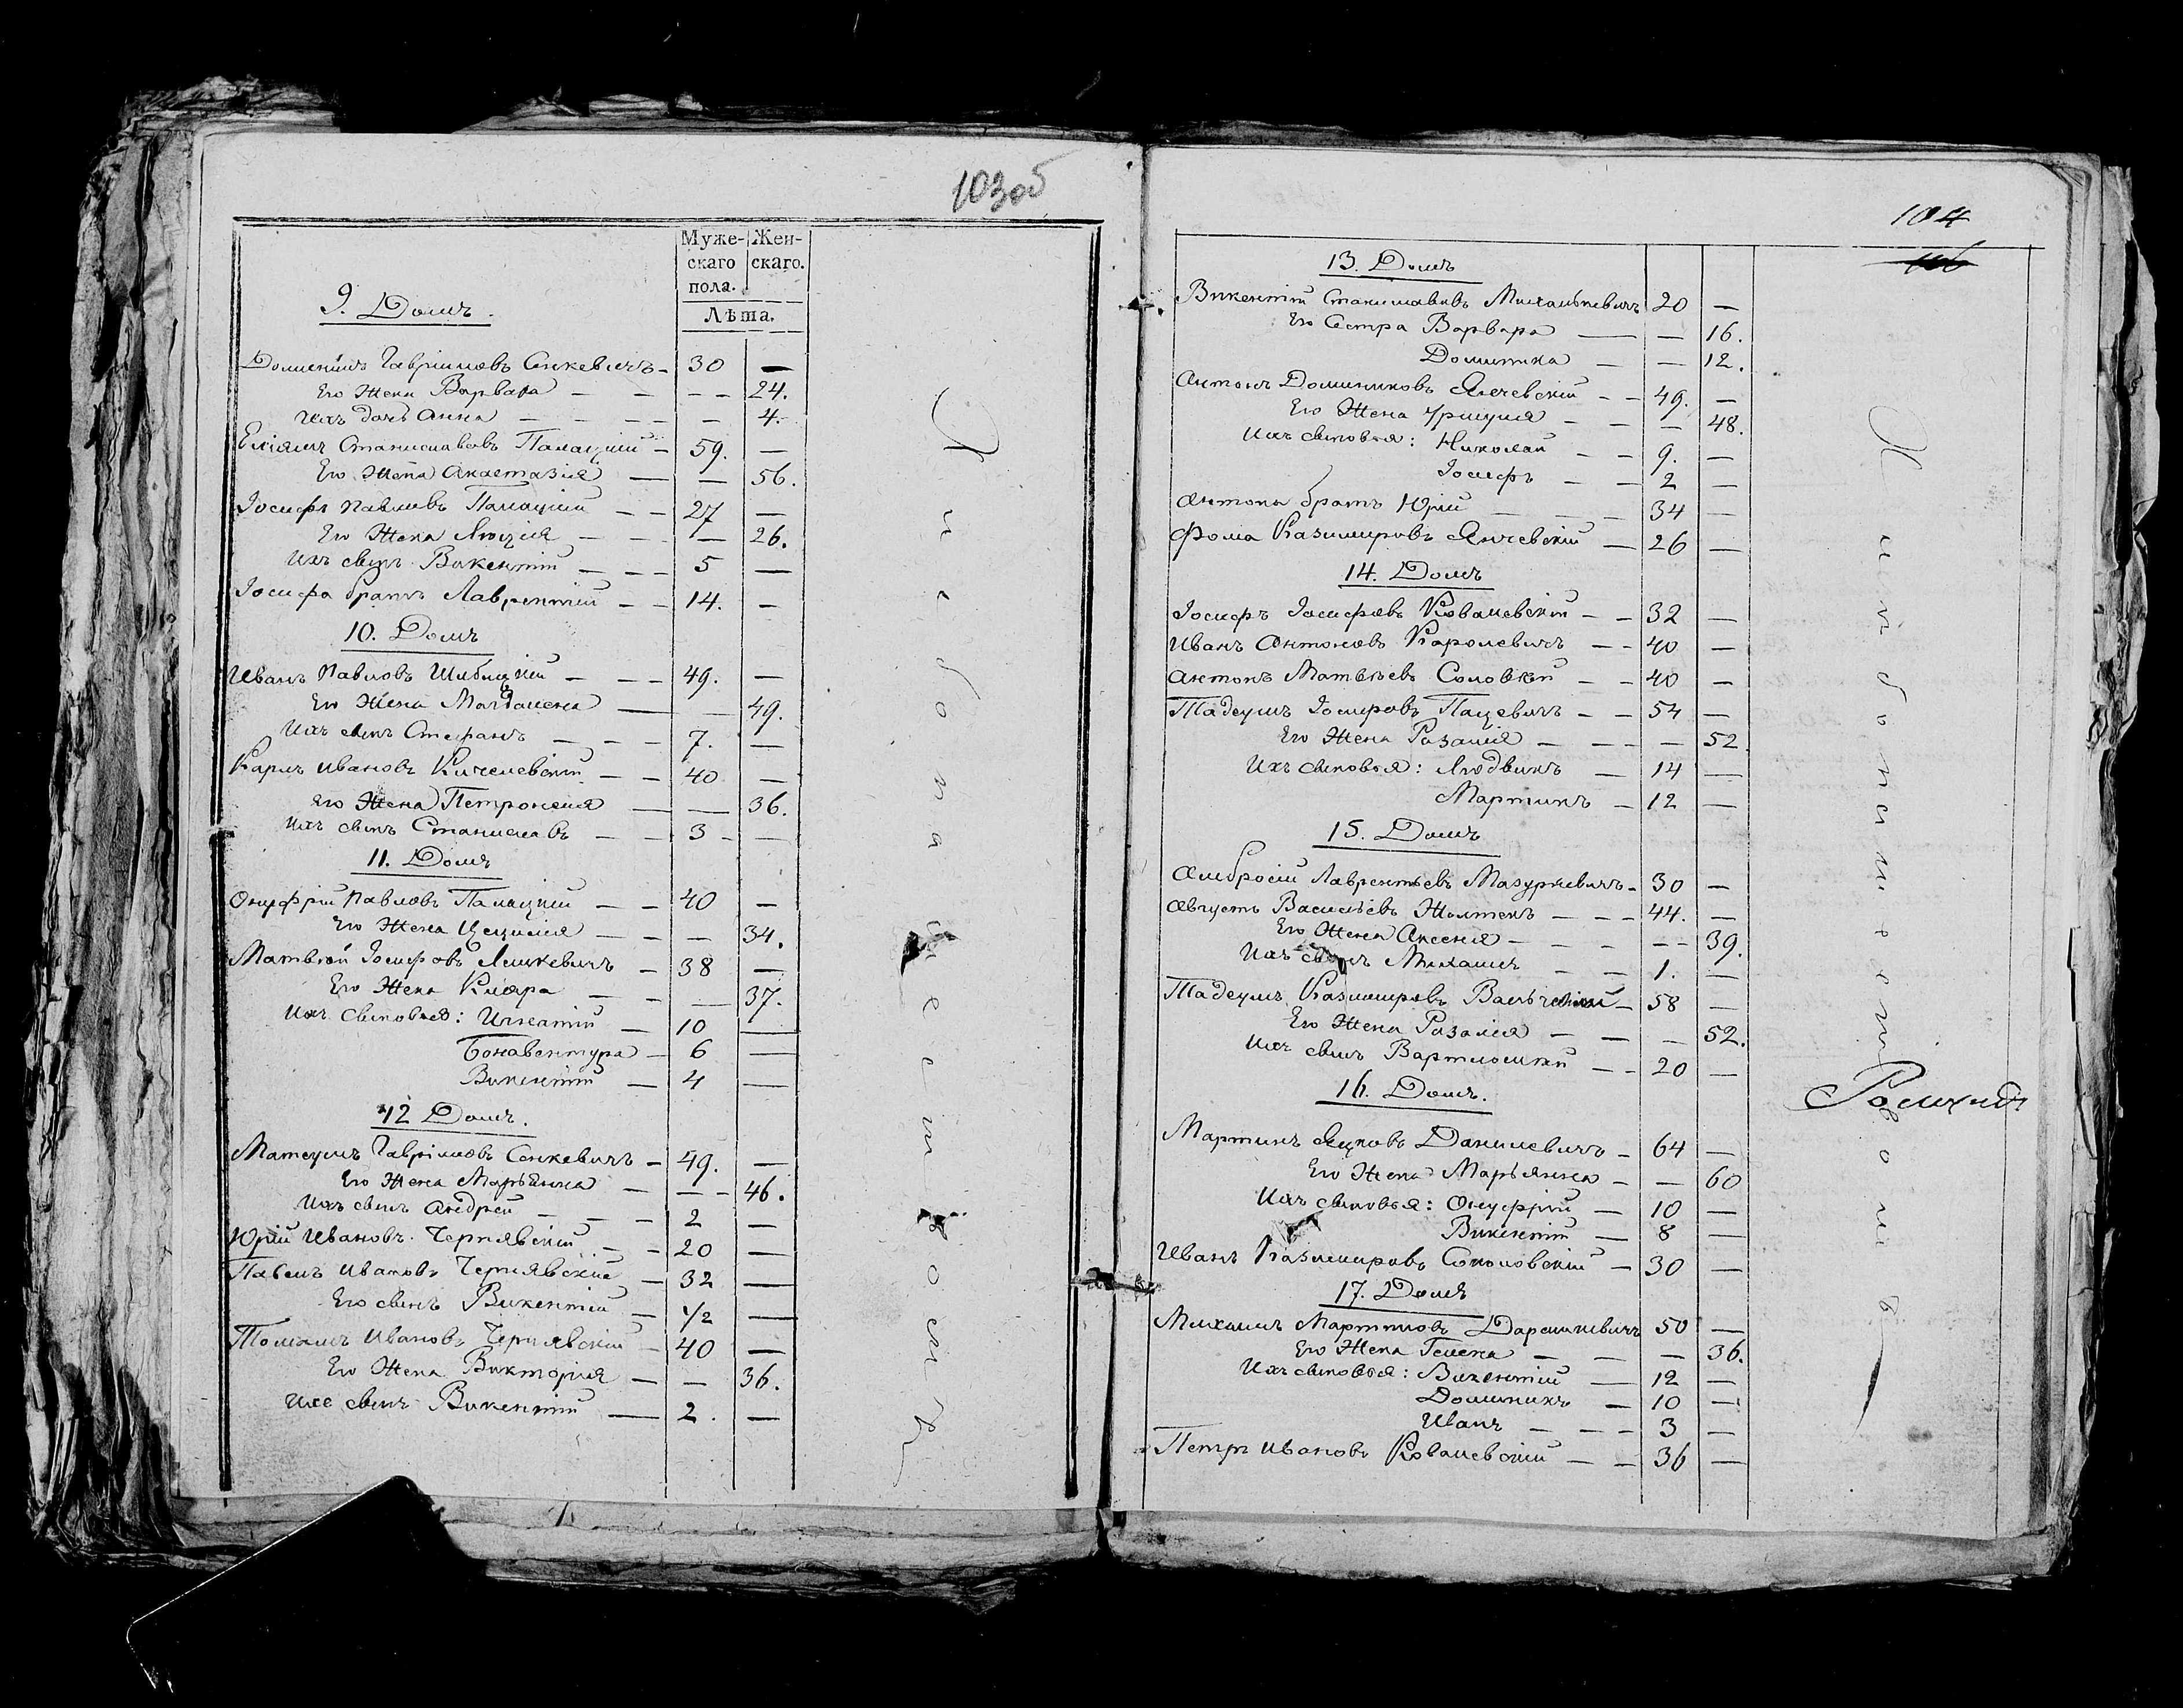 103об
Муже- Жен-
скаго скаго.
пола.
Лѣта.
9. Домъ.
Доминикъ Гавріиловъ Сенкевичъ - 30 —
Его Жена Варвара — — — 24.
Ихъ дочь Анна — — — 4.
Станиславовъ Палацкій — 59. —
Его Жена Анастазія — — 56.
Іосифъ Павловъ Палацкій — — 27 —
Его Жена Люція — — — 26.
Ихъ сынъ Викентій — — 5 —
Іосифа братъ Лаврентій — — 14. —
10. Домъ
Иванъ Павловъ — — 49. —
Его Жена Магдалена — — 49.
Ихъ сынъ Стефанъ — — 7. —
Карлъ Ивановъ — — 40 —
Его Жена Петронеля — — 36.
Ихъ сынъ Станиславъ — — 3 —
11. Домъ
Онуфрій Павловъ Палацкій — — 40 —
Его Жена Цецилія — — — 34.
Матвѣй Іосифовъ — 38 —
Его Жена Клара — — — 37.
Ихъ Сыновья: Игнатій — 10 —
Бонавентура — 6 —
Викентій — 4 —
12 Домъ.
Матеушъ Гавріиловъ Сенкевичъ — 49. —
Его Жена Марьянна — — — 46.
Ихъ сынъ Андрей — — — 2 —
Юрій Ивановъ Чернявскій — — 20 —
Павелъ Ивановъ Чернявскій — 32 —
Его сынъ Викентій — 1/2 —
Томашъ Ивановъ Чернявскій — 40 —
Его Жена Викторія — — 36.
Ихъ сынъ Викентій — 2. —
104
13. Домъ
Викентій Станиславовъ Михалькевичъ 20 —
Его Сестра Варвара — — 16.
— — 12.
Антонъ Доминиковъ Янчевскій — — 49. —
Его Жена Уршуля — — — 48.
Ихъ сыновья: Николай — — 9. —
Іосифъ — — 2 —
Антона братъ Юрій — — — 34 —
Фома Казимировъ Янчевскій — 26 —
14. Домъ
Іосифъ Іосифовъ Ковалевскій — — 32 —
Иванъ Антоновъ Каролевичъ — — 40 —
Антонъ Матвѣевъ — — 40 —
Тадеушъ Іосифовъ Пацевичъ — — 54 —
Его Жена Розалія — — — — 52
Ихъ сыновья: Людвикъ — 14 —
Мартинъ — 12 —
15. Домъ
Амбросій Лаврентьевъ Мазуркевичъ — 30 —
Августъ Васильевъ — — — 44. —
Его Жена Аксенія — — — — 39.
Ихъ сынъ Михаилъ — — 1. —
Тадеушъ Казимировъ — 58 —
Его Жена Розалія — — — 52.
Ихъ сынъ Вартломѣй — — 20 —
16. Домъ.
Мартинъ Яцковъ Данилевичъ — 64 —
Его Жена Марьянна — — 60
Ихъ сыновья: Онуфрій — 10 —
Викентій — 8 —
Иванъ Казимировъ Соколовскій — 30 —
17. Домъ
Михаилъ Мартиновъ 50 —
Его Жена Гелена — — — 36.
Ихъ сыновья: Викентій — 12 —
Доминикъ — 10 —
Иванъ — — — 3 —
Петръ Ивановъ Ковалевскій — — 36 —